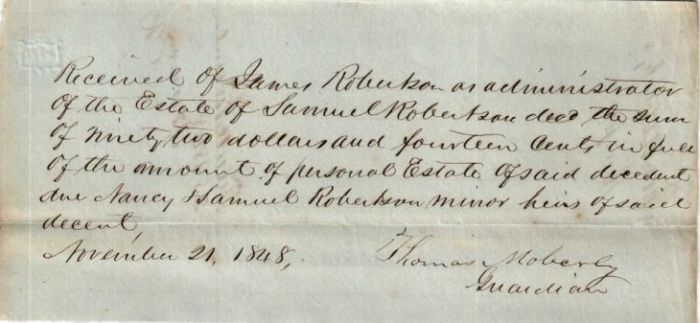 Received of James Robertson as administrator
of the Estate of Samuel Robertson decd the sum
of ninety two dollars and fourteen cents in full
of the amount of personal Estate of said decedent
due Nancy & Samuel Robertson minor heirs of said
decent,
November 21, 1848,
Thomas Moberly
Guardian